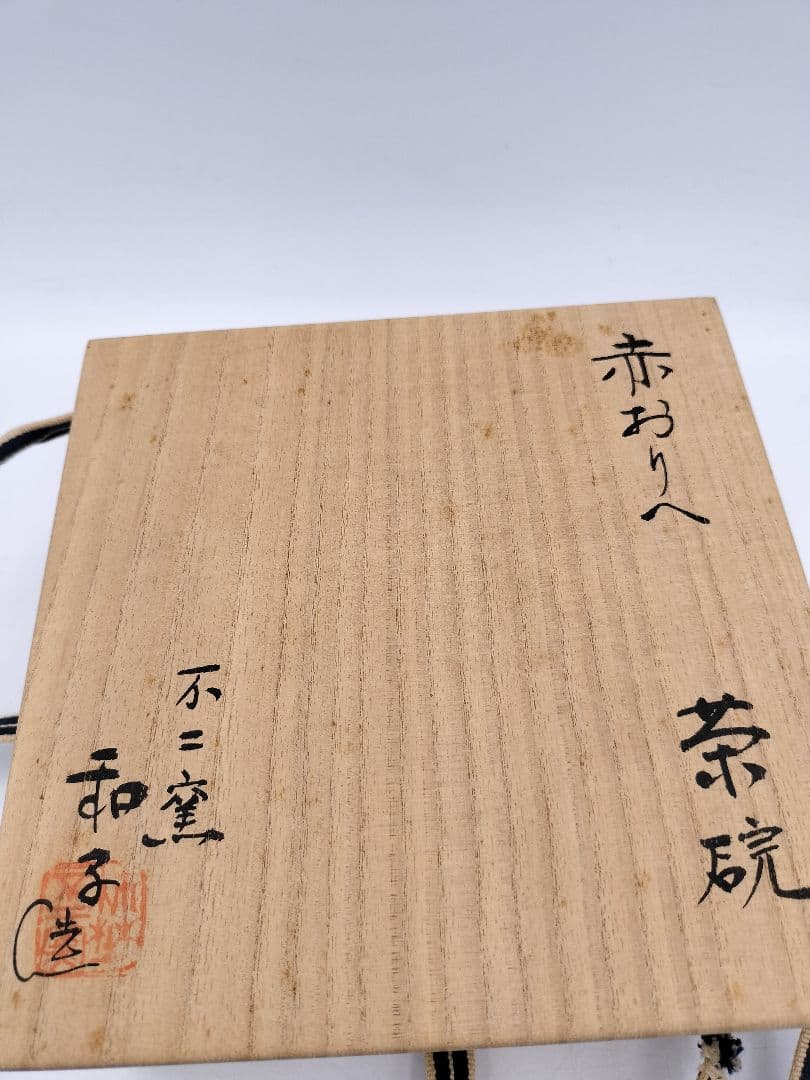 赤おりへ
茶碗
不二窯
和子造